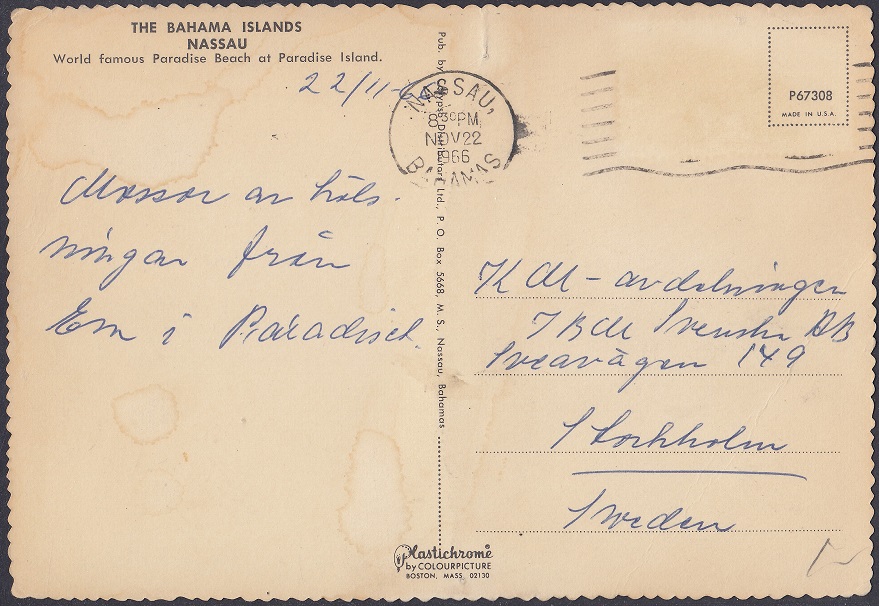 THE BAHAMA ISLANDS
NASSAU
World famous Paradise Beach at Paradise Island.
22/11-66
Massor av häls-
ningar från
En i Paradiset.
NASSAU,
8 30 PM
NOV 22
1966
BAHAMAS
Pub. by Calypso Distributors Ltd., P. O. Box 5668, M. S., Nassau, Bahamas
P67308
MADE IN U.S.A.
KM-avdelningen
IBM Svenska AB
Sveavägen 149
Stockholm
Sweden
Plastichrome
by COLOURPICTURE
BOSTON, MASS. 02130